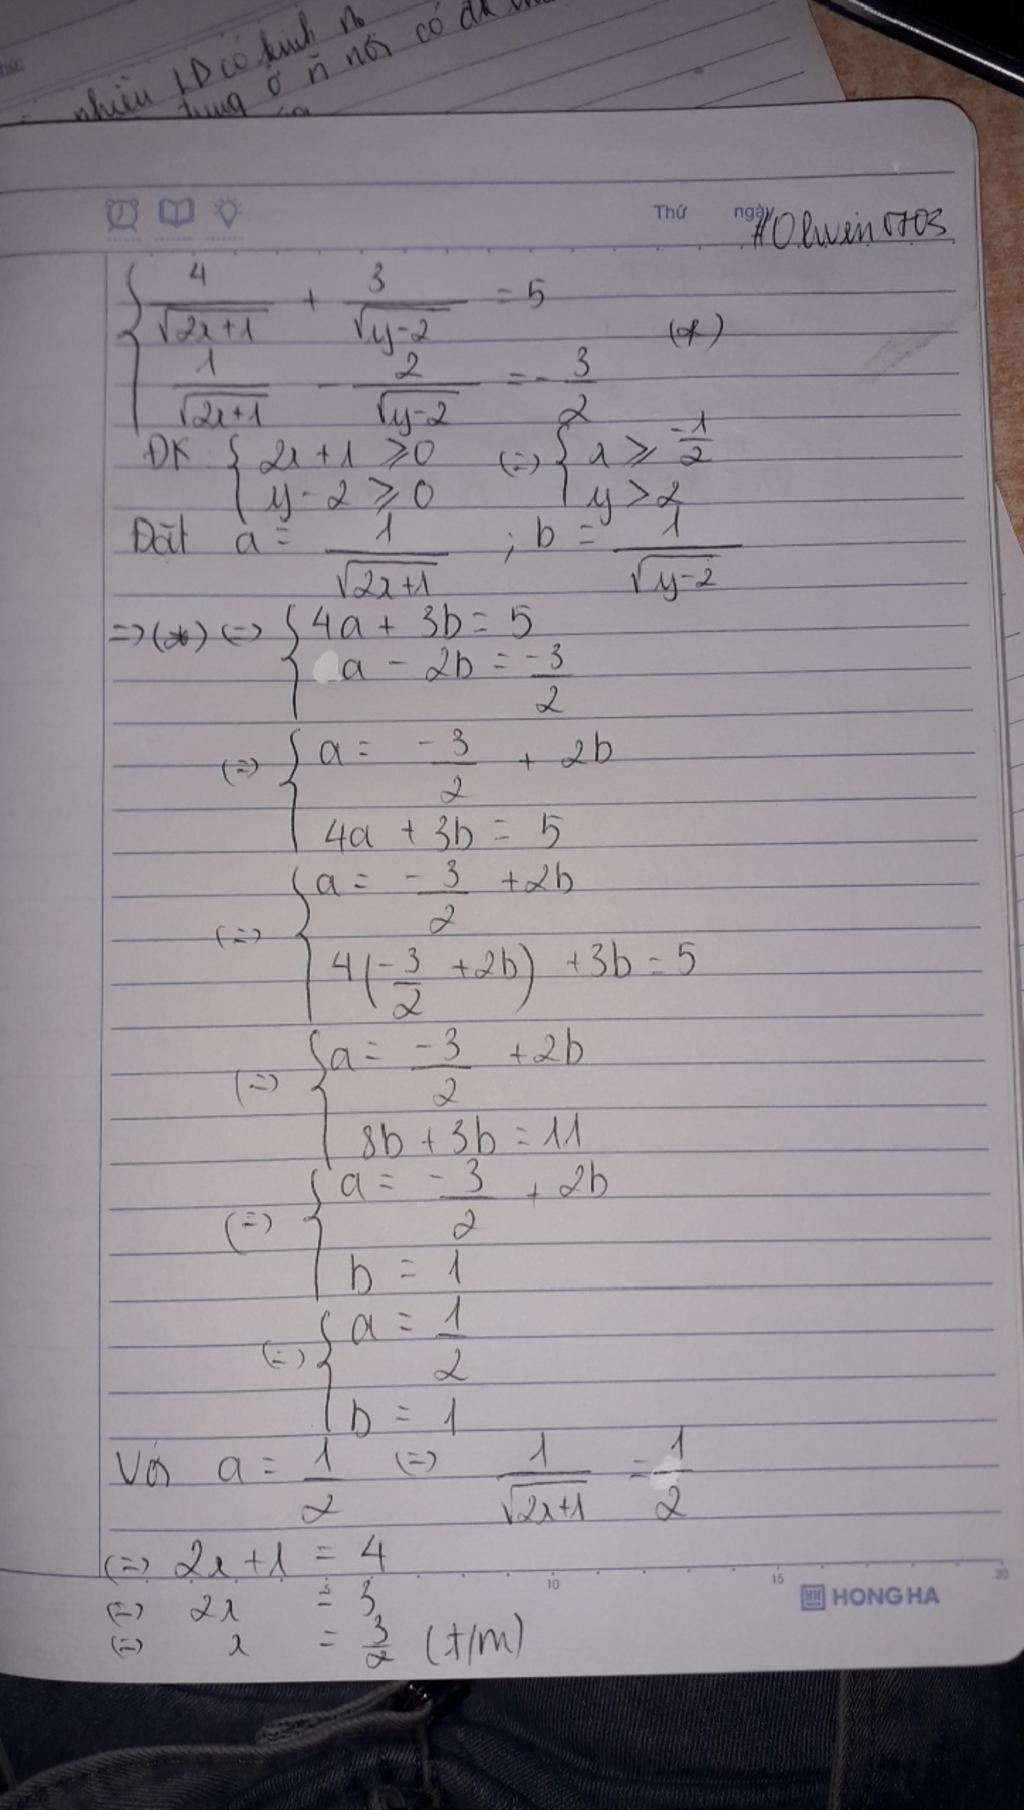 nhiên LD có kinh
Thứ ngày
4/√(2x+1) + 3/√(y-2) = 5
(*)
1/√(2x+1) - 2/√(y-2) = -3/2
ĐK: { 2x+1 ≥ 0 (=) { x ≥ -1/2
{ y-2 ≥ 0 { y > 2
Đặt a = 1/√(2x+1) ; b = 1/√(y-2)
=> (*) (=) { 4a + 3b = 5
{ a - 2b = -3/2
(=) { a = -3/2 + 2b
{ 4a + 3b = 5
(=) { a = -3/2 + 2b
{ 4(-3/2 + 2b) + 3b = 5
(=) { a = -3/2 + 2b
{ 8b + 3b = 11
(=) { a = -3/2 + 2b
{ b = 1
(=) { a = 1/2
{ b = 1
Với a = 1/2 (=) 1/√(2x+1) = 1/2
(=) 2x+1 = 4
(=) 2x = 3
(=) x = 3/2 (t/m)
5 10 15 20
HONG HA